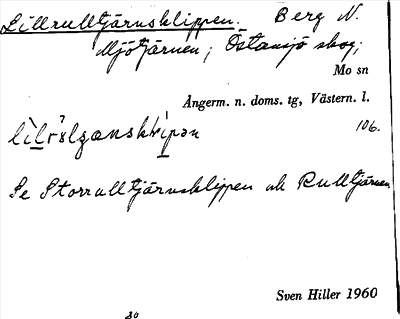 Lillrulltjärnsklippen. Berg N.
Mjötjärnen; Östansjö skog;
Mo sn
Ångerm. n. doms. tg, Västern. l.
106.
Se Storrulltjärnsklippen och Rulltjärnen
Sven Hiller 1960
30